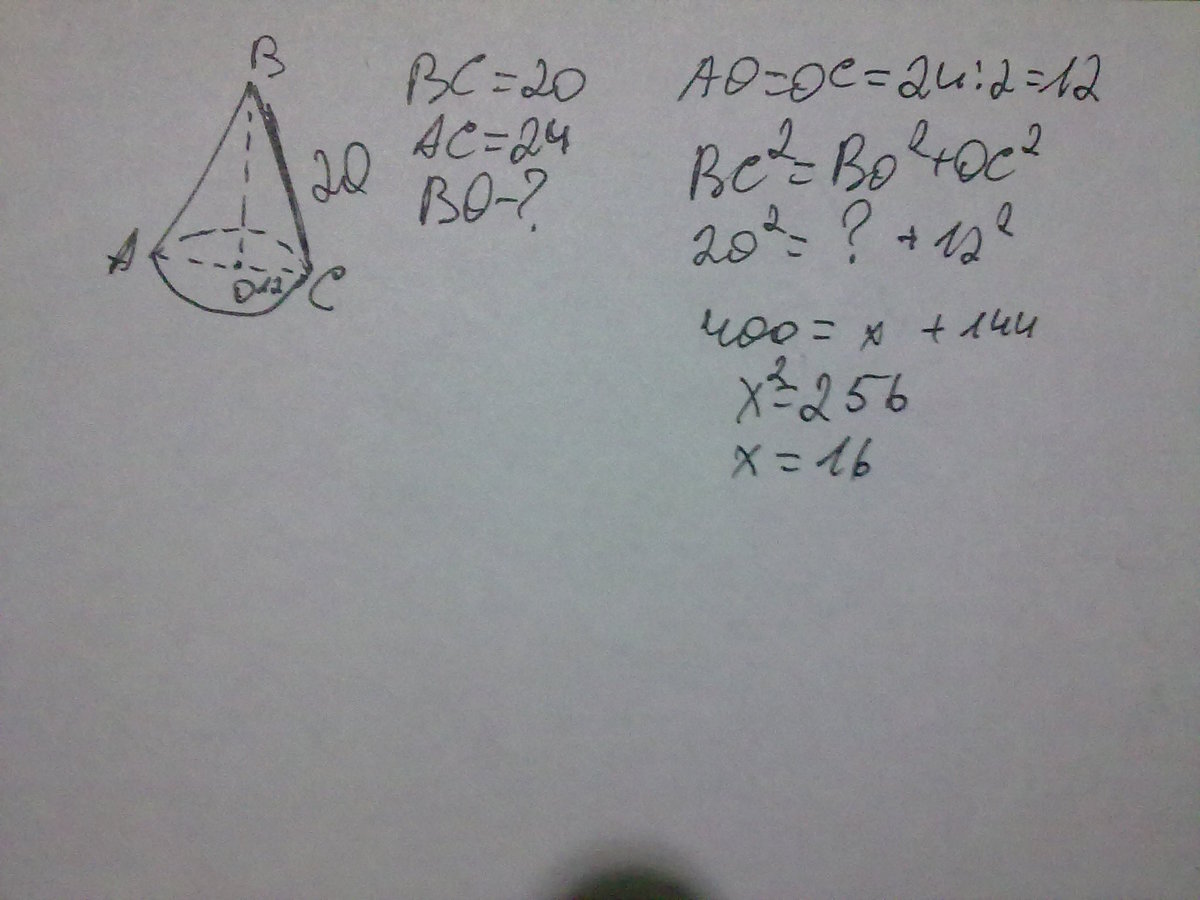 B
A
20
O 12
C
BC=20
AC=24
BO-?
AO=OC=24:2=12
BC²=BO²+OC²
20²= ? +12²
400= x +144
x²=256
x=16